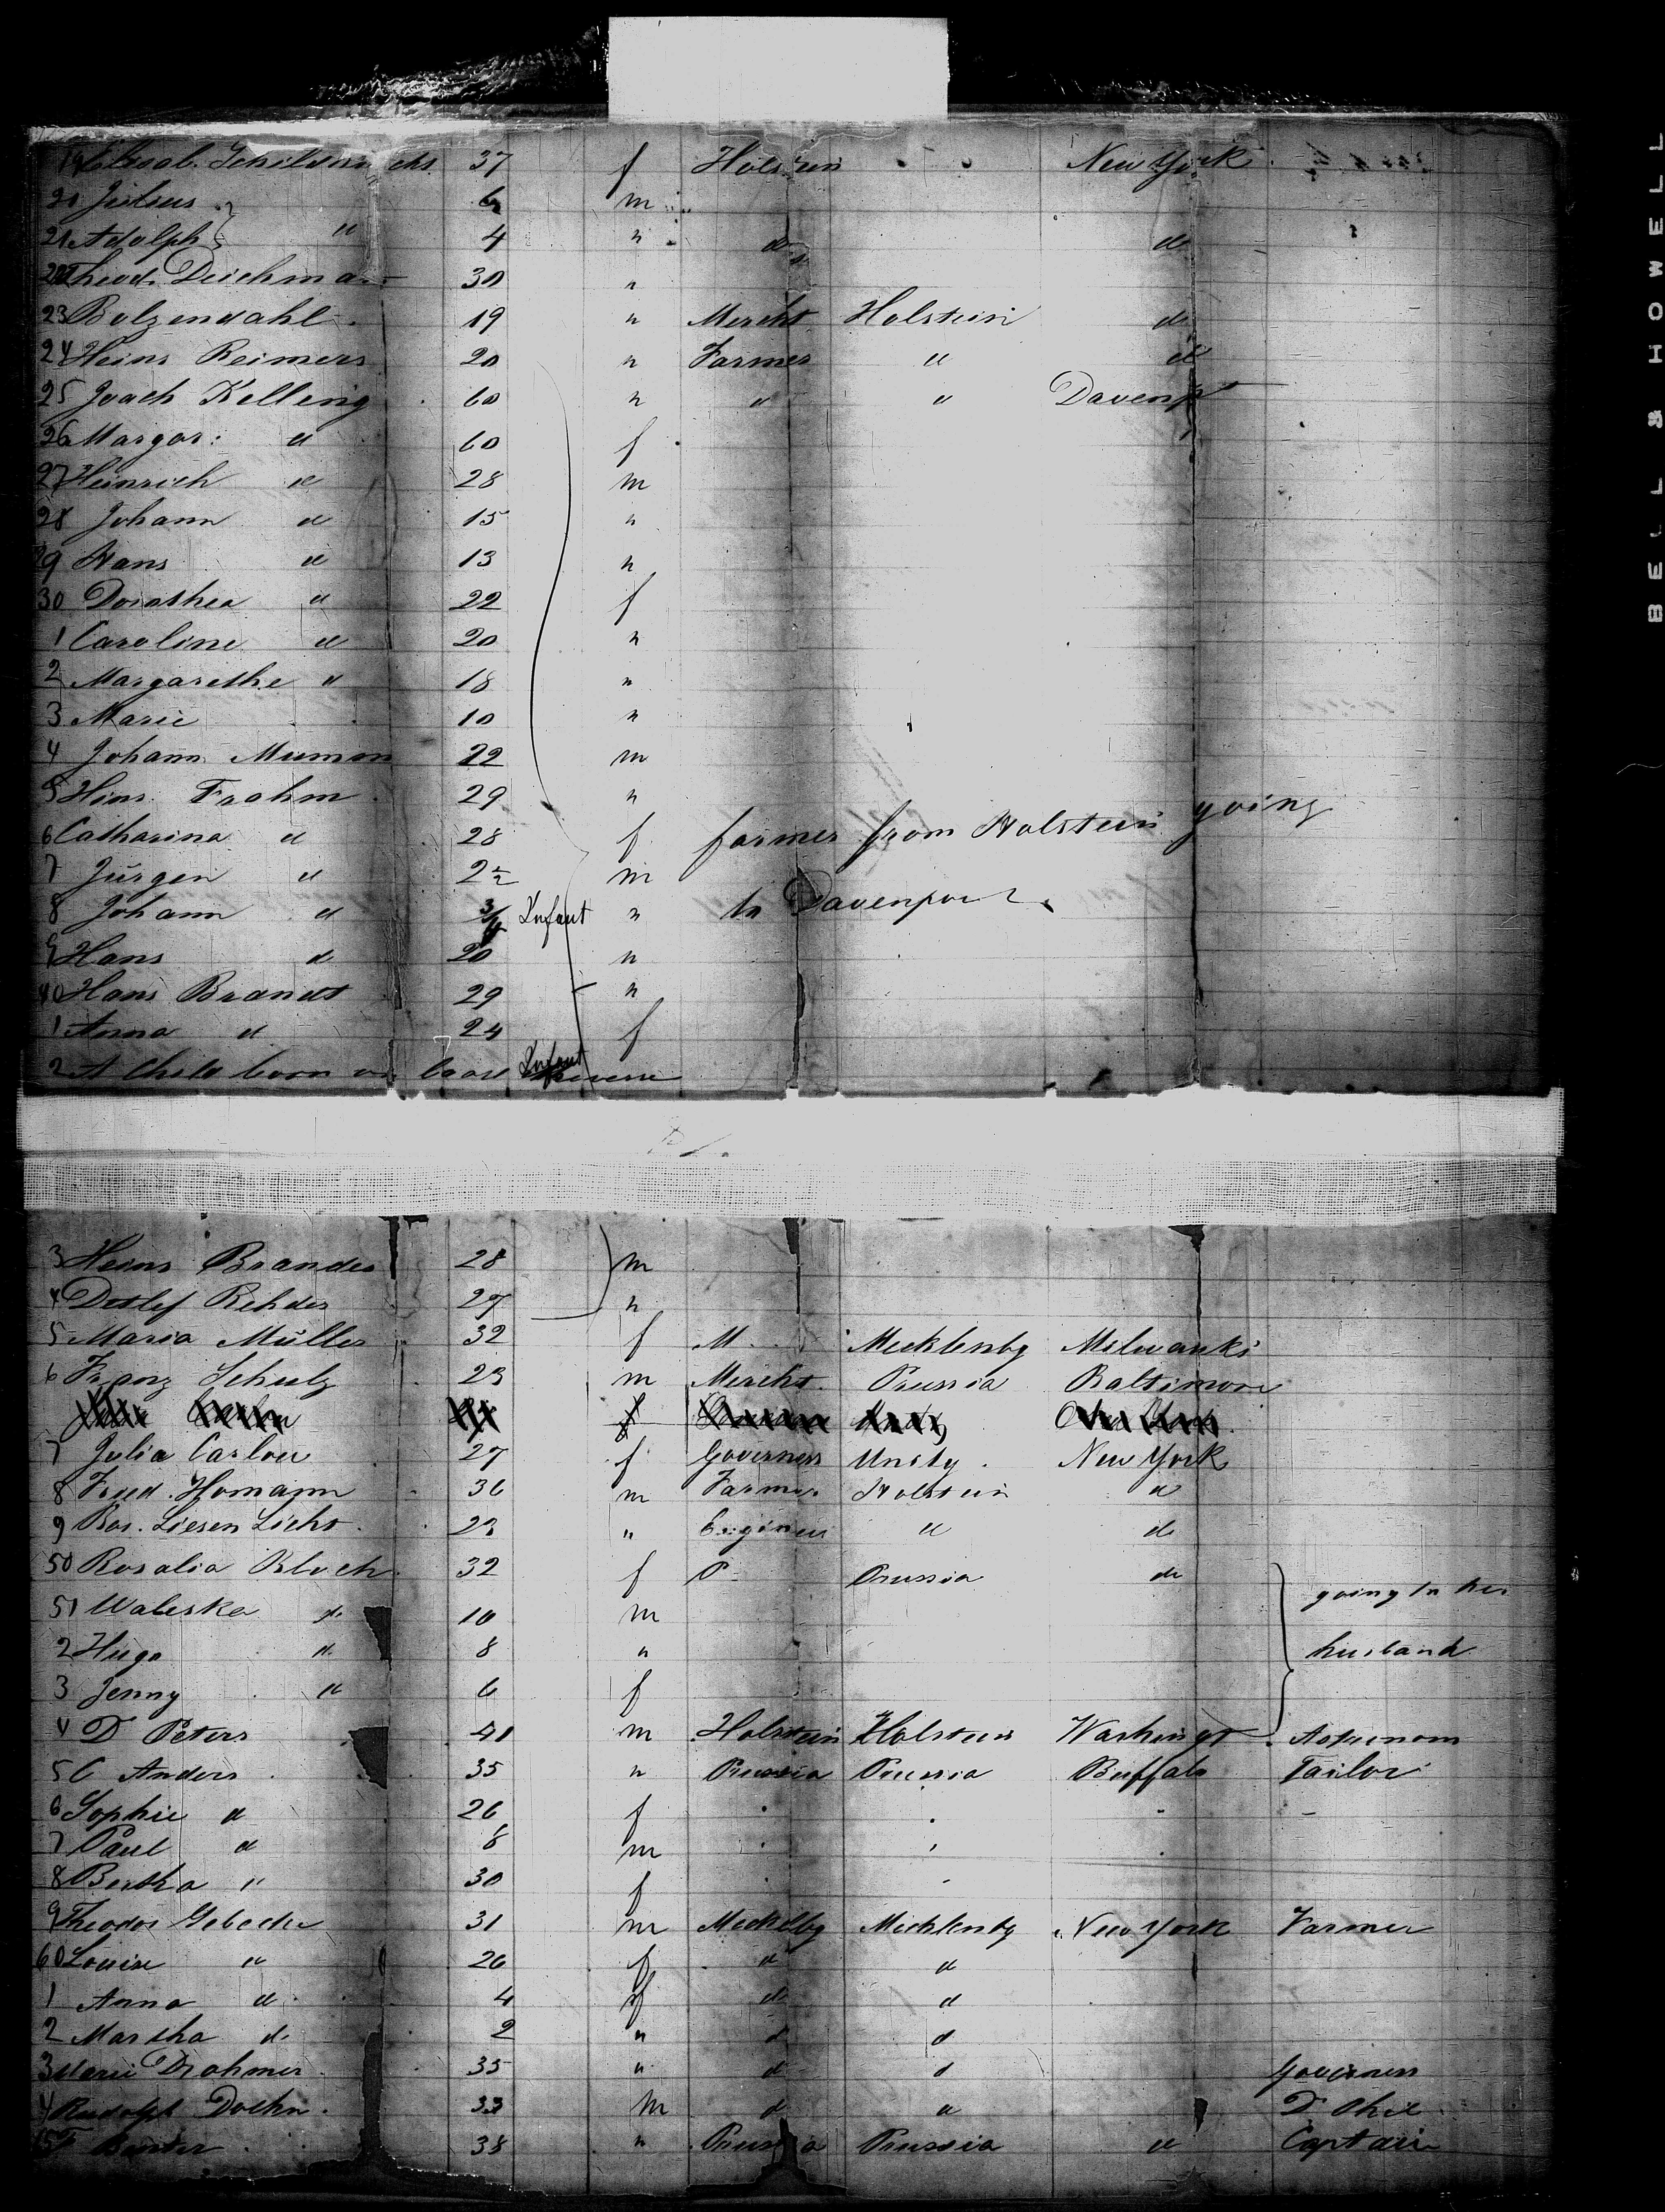 37 f Holstein " " New York
20 Julius 6 m
21 Adolph " 4 " do do
22 Theod. Deichman 30 "
23 Bolzendahl 19 " Mercht Holstein do
24 Heinr Reimers 20 " Farmer " do
25 Joach Kelling 60 " " " Davenp
26 Margar: " 60 f
27 Heinrich " 28 m
28 Johann " 15 "
29 Hans " 13 "
30 Dorothea " 22 f
1 Caroline " 20 "
2 Margarethe " 18 "
3 Marie 10 "
4 Johann Mumm 22 m
5 Hinr. Frahm 29 "
6 Catharina " 28 f farmer from Holstein going
7 Jürgen " 2½ m
8 Johann " 3/4 Infant " to Davenport.
9 Hans " 20 "
40 Hans Brandt 29 "
1 Anna " 24 f
2 A Child born on board Infant
3 Heinr Brandes 28 m
4 Detlef Rehder 27 "
5 Maria Müller 32 f M. Mecklenbg Milwauki
6 Franz Schulz 23 m Mercht. Prussia Baltimore
7 Julia Carlou 27 f Governess Unity. New York
8 Fred. Homann 36 m Farmer Holstein "
9 Ros. Liesen Licht. 23 " Engineer " do
50 Rosalia Bloch 32 f P. Prussia do
going to her
51 Waleska do 10 m
2 Hugo " 8 " husband
3 Jenny " 6 f
4 D Peters 41 m Holstein Holstein Washingt.
5 C Anders 35 " Prussia Prussia Buffalo Tailor
6 Sophie " 26 f " " " "
7 Paul " 8 m " "
8 Bertha " 30 f " "
9 Theodor 31 m Mecklbg Mecklenbg New York Farmer
60 Louise " 26 f " "
1 Anna " 4 f do "
2 Martha do 2 " " "
3 Marie Drahmer 35 " " " Governess
4 Rudolph Doehn. 33 m " " D Phil
65 F 38 " Prussia Prussia " Captain
BELL & HOWELL